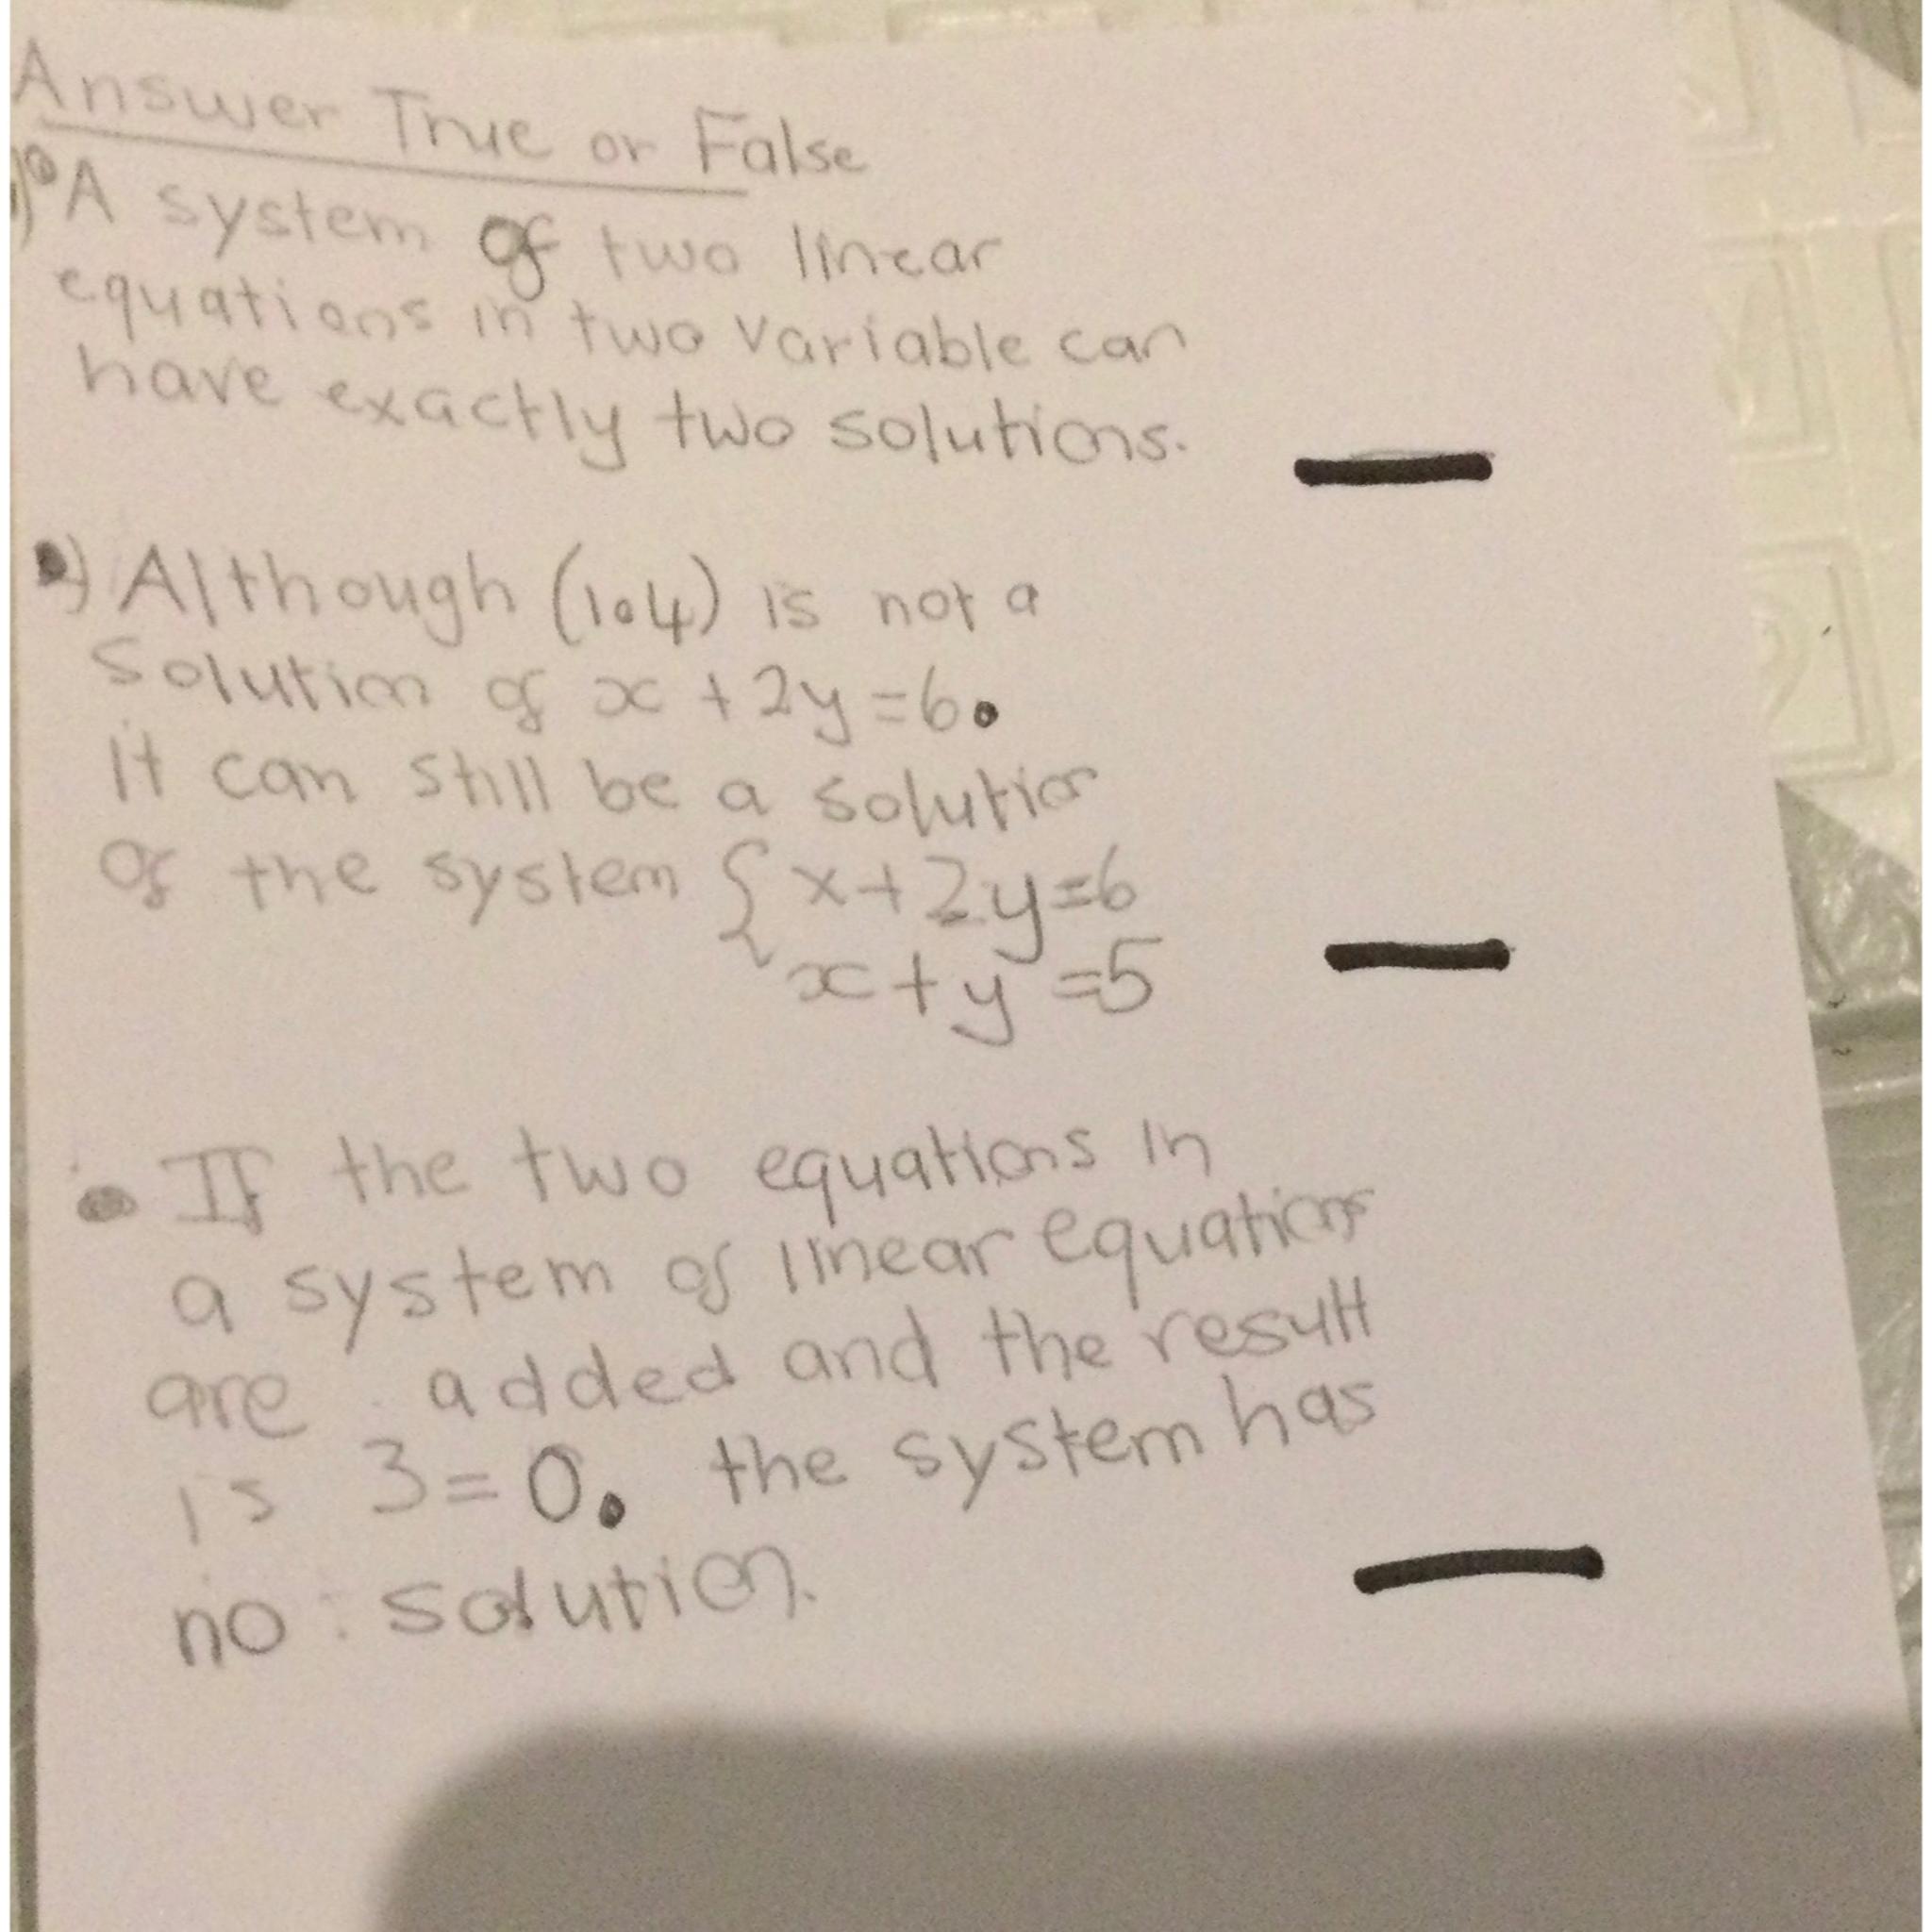 Answer True or False
A system of two linear
equations in two variable can
have exactly two solutions.
Although (1.4) is not a
Solution of x + 2y = 6.
it can still be a solution
of the system { x + 2y = 6
x + y = 5
• If the two equations in
a system of linear equations
are added and the result
is 3 = 0. the system has
no solution.